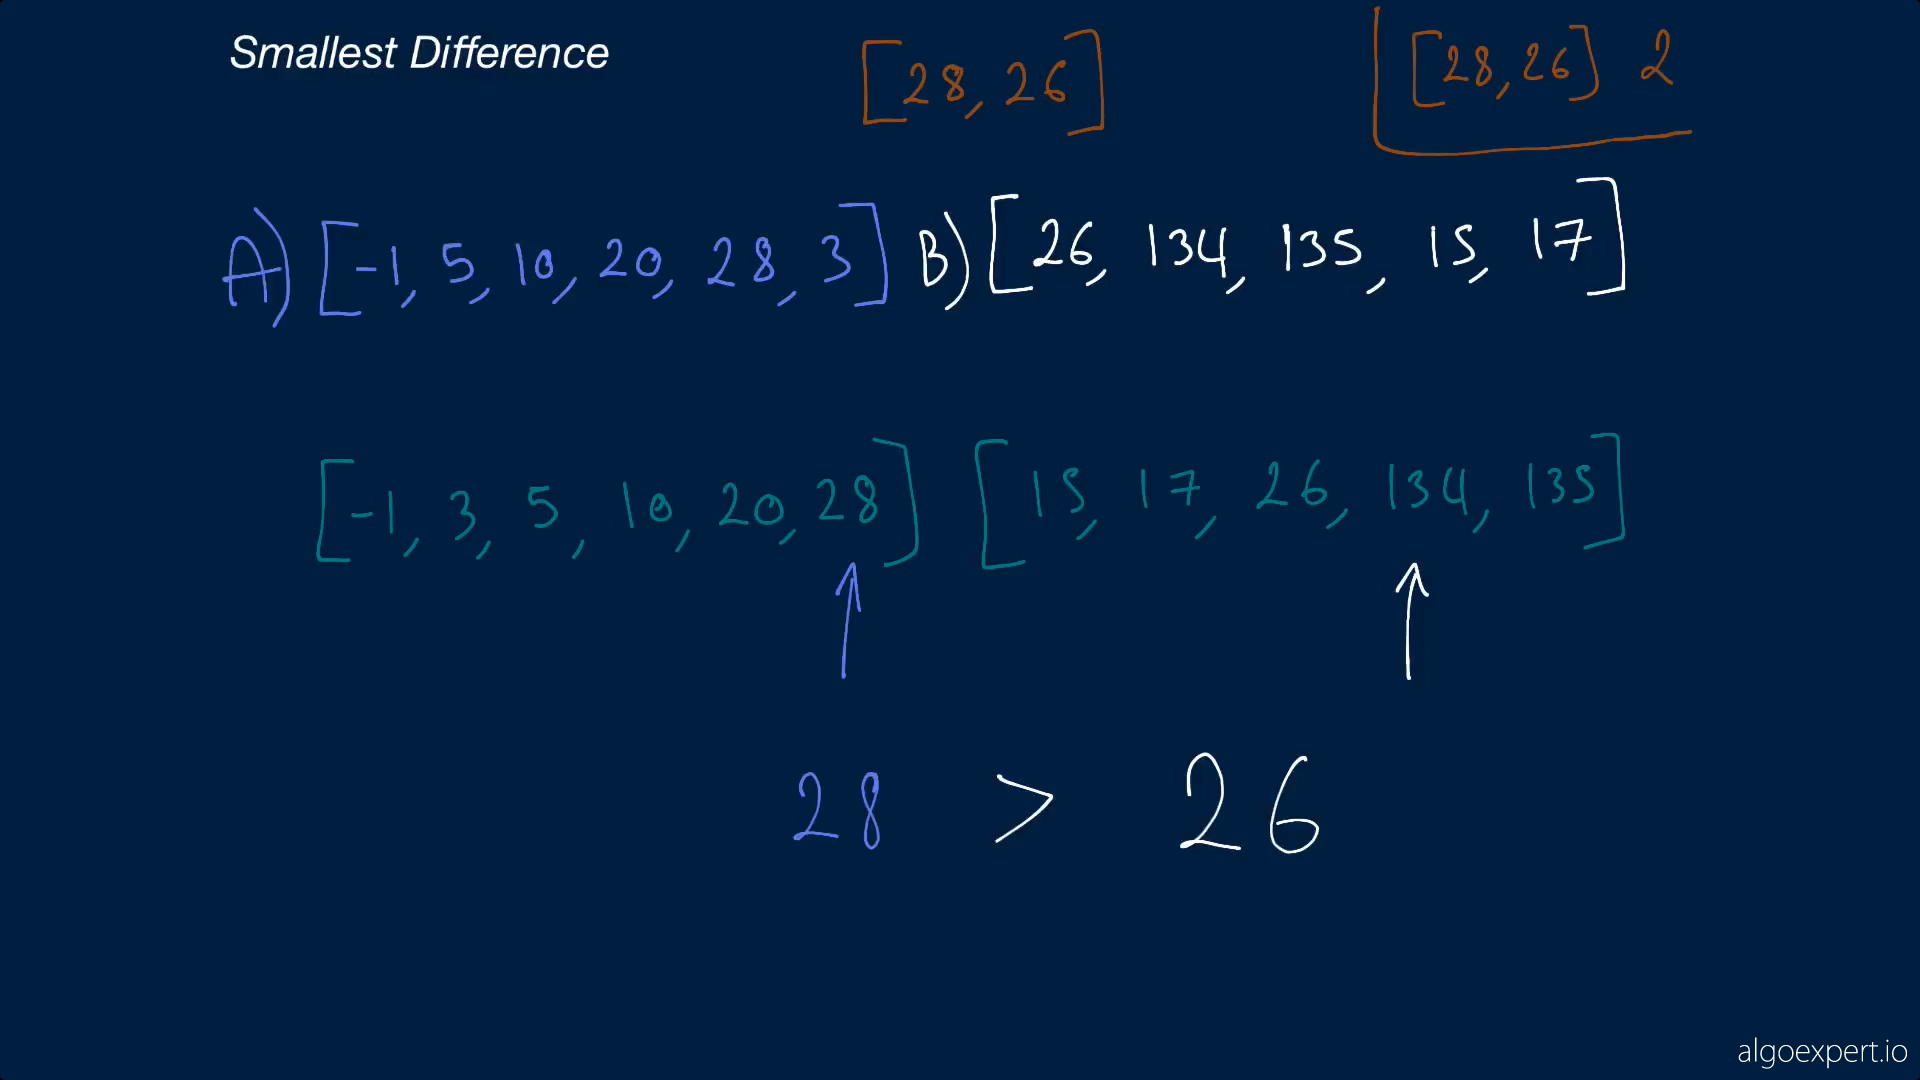 Smallest Difference [28, 26] [28, 26] 2
A) [-1, 5, 10, 20, 28, 3] B) [26, 134, 135, 15, 17]
[-1, 3, 5, 10, 20, 28] [15, 17, 26, 134, 135]
28 > 26
algoexpert.io